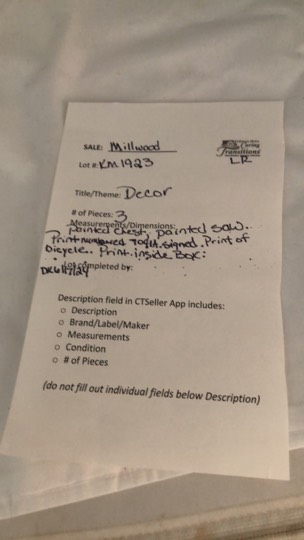 SALE: Millwood
Caring
Transitions
Lot #: KM1923
LR
Title/Theme: Decor
# of Pieces: 3
Measurements/Dimensions:
painted chest. painted saw.
Print numbered signed. Print of
bicycle. Print. inside Box.
Lot Completed by:
Description field in CTSeller App includes:
○ Description
○ Brand/Label/Maker
○ Measurements
○ Condition
○ # of Pieces
(do not fill out individual fields below Description)